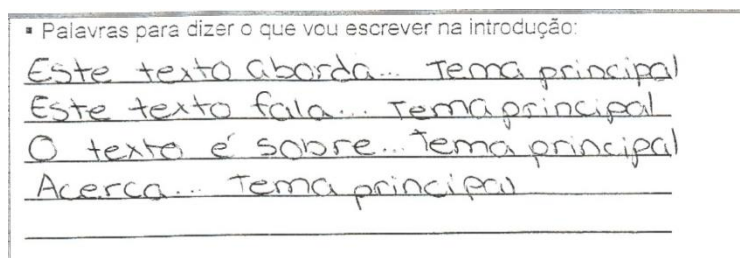 ▪ Palavras para dizer o que vou escrever na introdução:
Este texto aborda... Tema principal
Este texto fala... Tema principal
O texto é sobre... Tema principal
Acerca... Tema principal